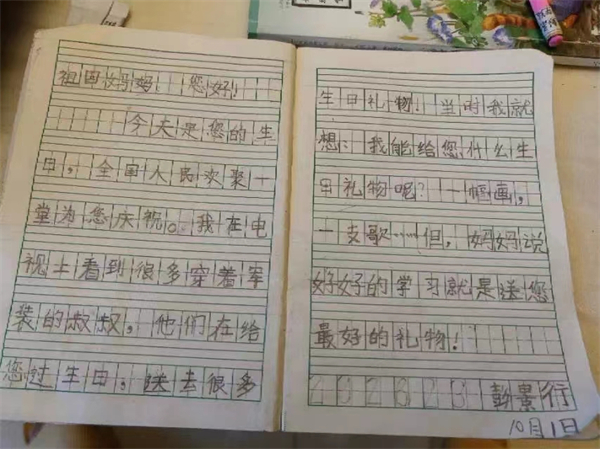 祖国妈妈！您好！
今天是您的生
日，全国人民欢聚一
堂为您庆祝。我在电
视上看到很多穿着军
装的叔叔，他们在给
您过生日，送去很多
生日礼物！当时我就
想：我能给您什么生
日礼物呢？一幅画，
一支歌……但，妈妈说
好好的学习就是送您
最好的礼物！
彭景行
10月1日